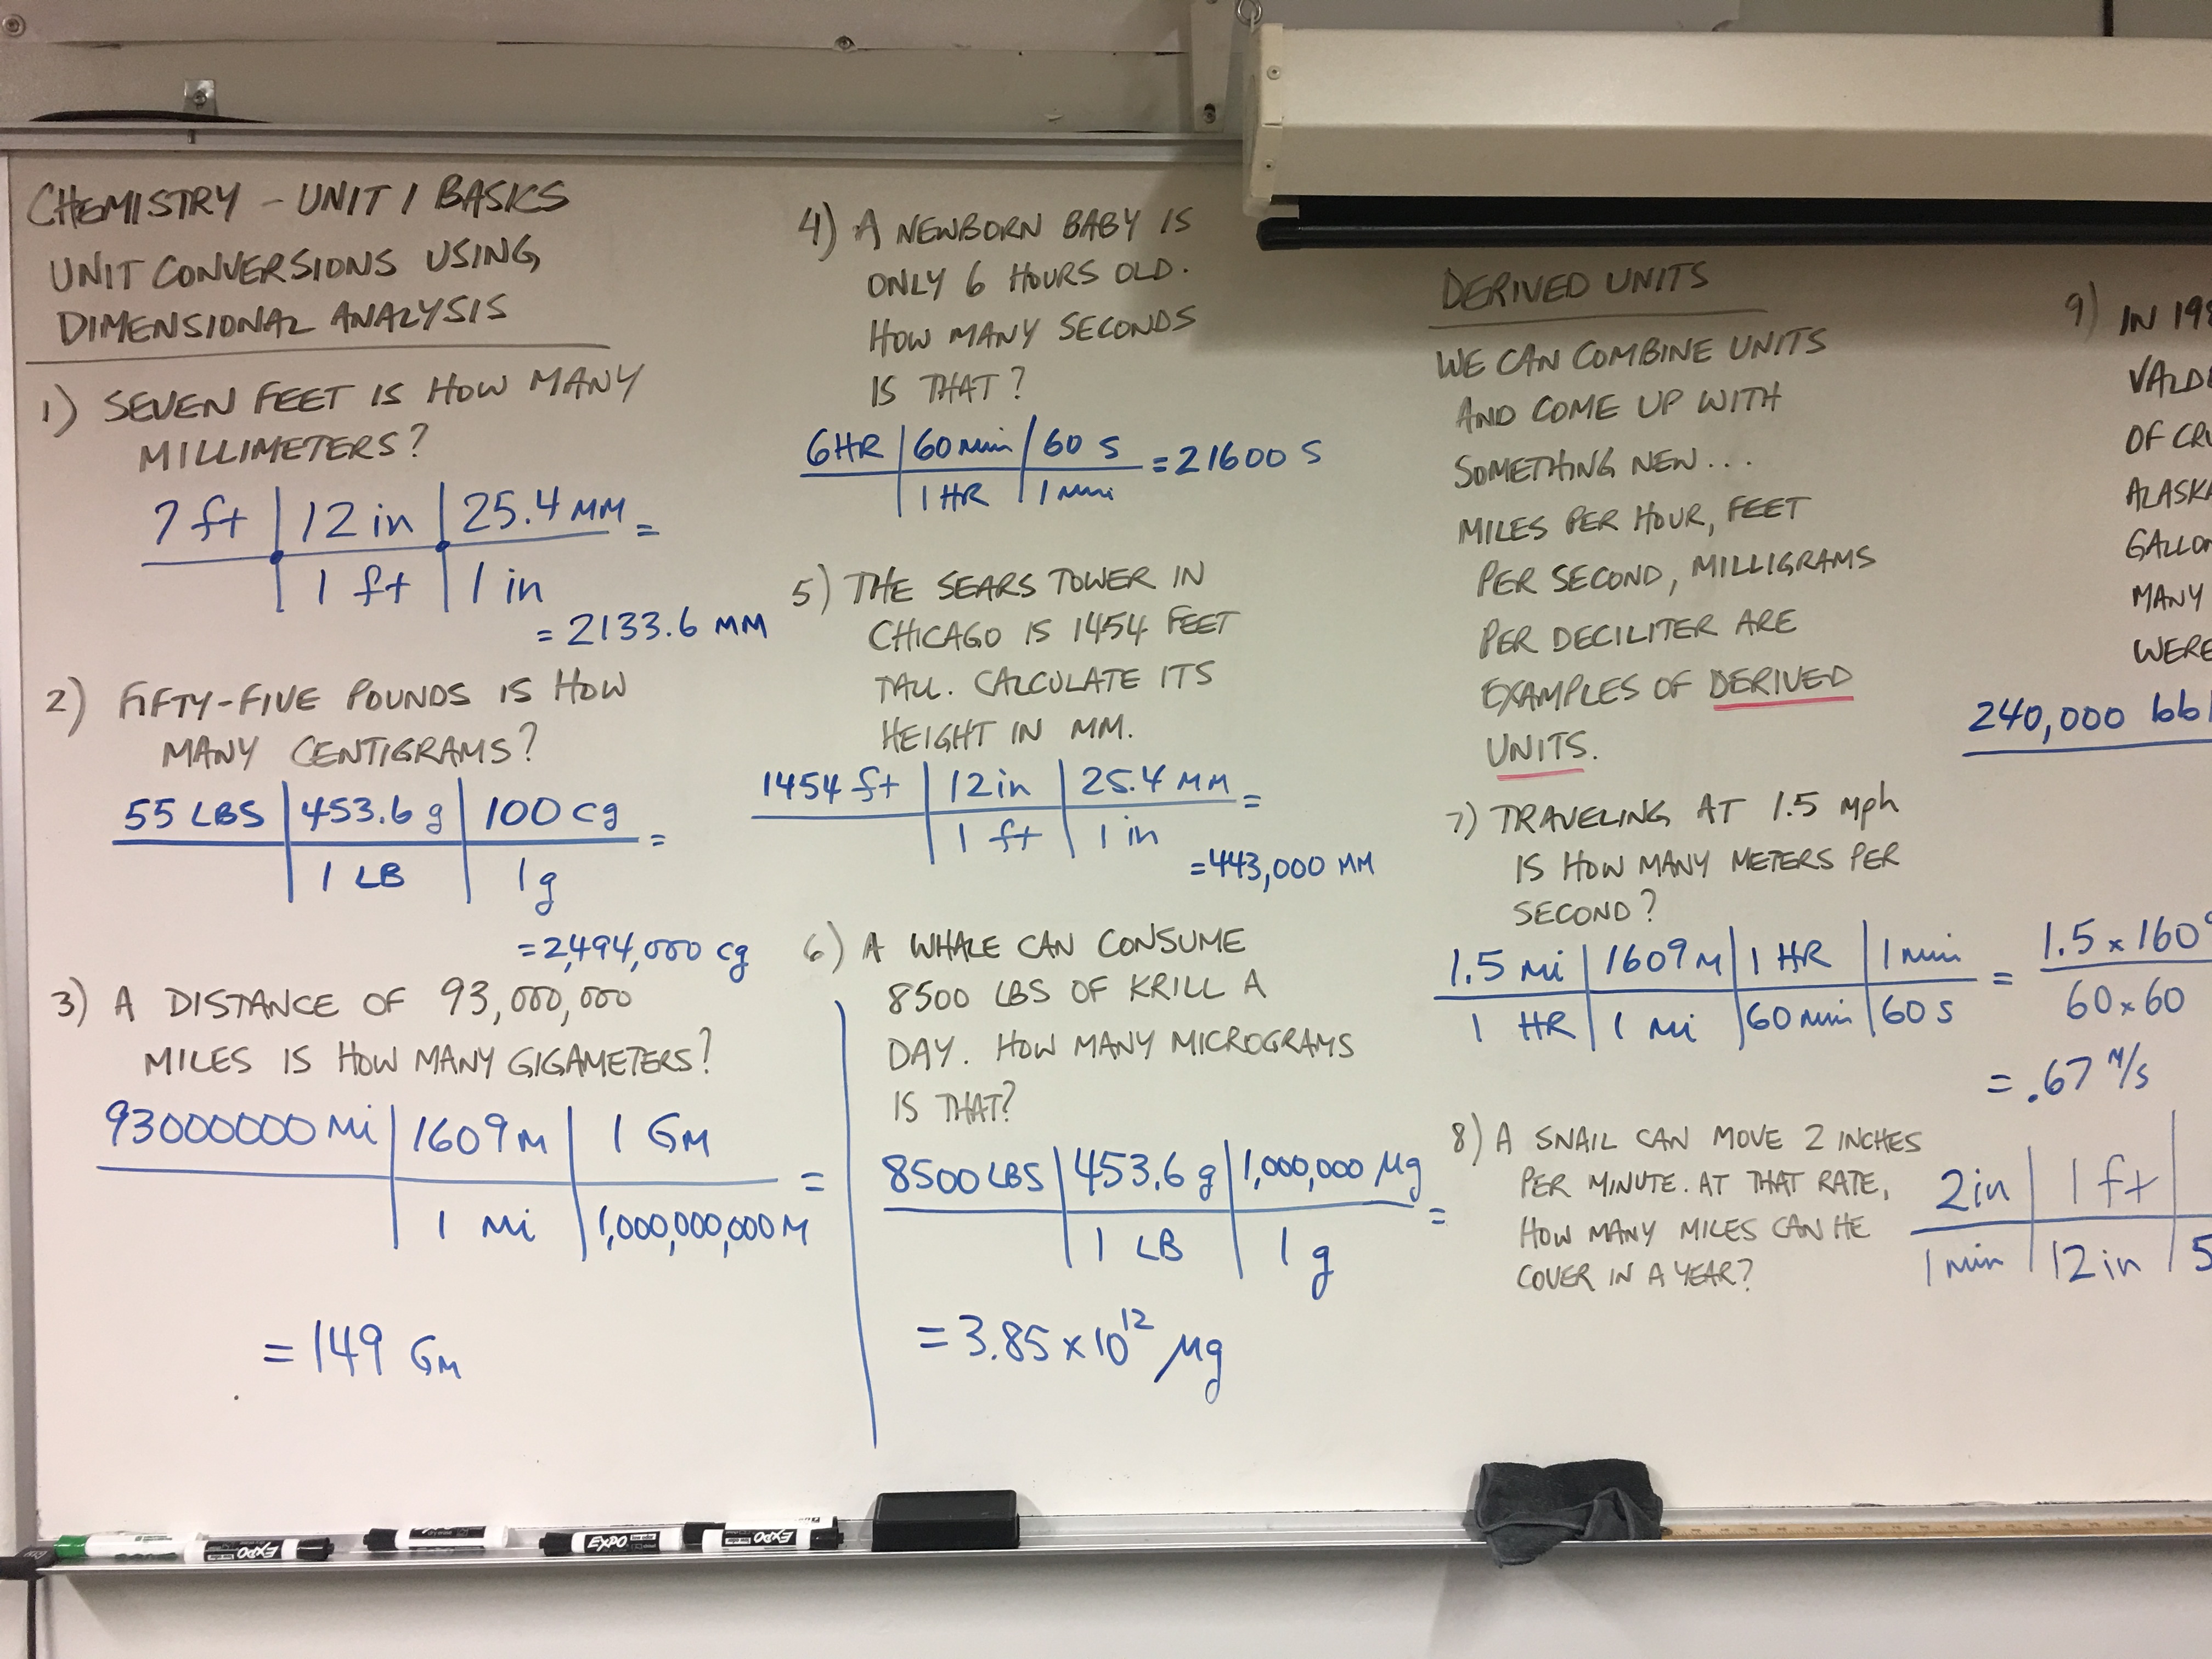 CHEMISTRY - UNIT 1 BASICS
UNIT CONVERSIONS USING
DIMENSIONAL ANALYSIS
1) SEVEN FEET IS HOW MANY
MILLIMETERS?
7 ft | 12 in | 25.4 MM =
1 ft | 1 in
= 2133.6 MM
2) FIFTY-FIVE POUNDS IS HOW
MANY CENTIGRAMS?
55 LBS | 453.6 g | 100 cg =
1 LB | 1 g
= 2,494,000 cg
3) A DISTANCE OF 93,000,000
MILES IS HOW MANY GIGAMETERS?
93000000 Mi | 1609 M | 1 GM =
1 Mi | 1,000,000,000 M
= 149 GM
4) A NEWBORN BABY IS
ONLY 6 HOURS OLD.
HOW MANY SECONDS
IS THAT?
6 HR | 60 min | 60 S = 21600 S
1 HR | 1 min
5) THE SEARS TOWER IN
CHICAGO IS 1454 FEET
TALL. CALCULATE ITS
HEIGHT IN MM.
1454 ft | 12 in | 25.4 MM =
1 ft | 1 in
= 443,000 MM
6) A WHALE CAN CONSUME
8500 LBS OF KRILL A
DAY. HOW MANY MICROGRAMS
IS THAT?
8500 LBS | 453.6 g | 1,000,000 µg =
1 LB | 1 g
= 3.85 x 10¹² µg
DERIVED UNITS
WE CAN COMBINE UNITS
AND COME UP WITH
SOMETHING NEW...
MILES PER HOUR, FEET
PER SECOND, MILLIGRAMS
PER DECILITER ARE
EXAMPLES OF DERIVED
UNITS.
7) TRAVELING AT 1.5 mph
IS HOW MANY METERS PER
SECOND?
1.5 Mi | 1609 M | 1 HR | 1 min = 1.5 x 1609
1 HR | 1 Mi | 60 min | 60 S 60 x 60
= .67 M/S
8) A SNAIL CAN MOVE 2 INCHES
PER MINUTE. AT THAT RATE,
HOW MANY MILES CAN HE
COVER IN A YEAR?
2 in | 1 ft |
1 min | 12 in | 5
9) IN 198
VALD
OF CRU
ALASKA
GALLON
MANY
WERE
240,000 bbl
EXPO
EXPO
EXPO